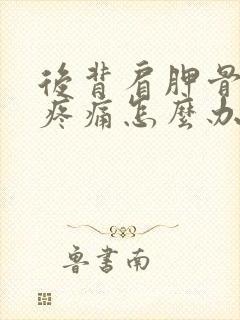 後背肩胛骨
疼痛怎麼办
鲁書南